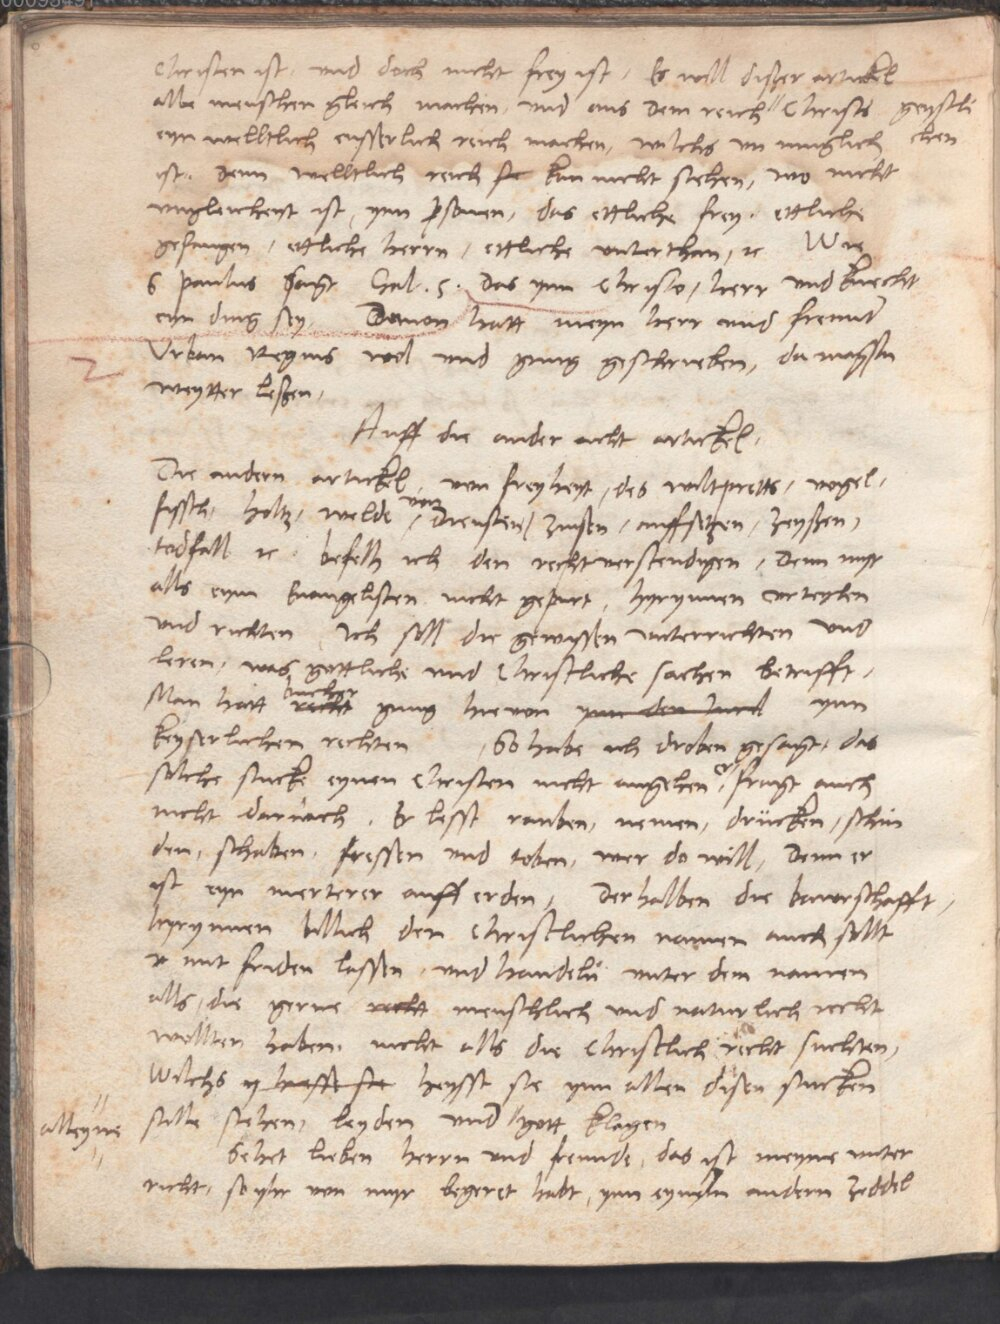 Christen ist, und doch nicht frey ist, Es will dißer artickel
alle menschen gleich machen, und aus dem reich || Christi geystli
eyn welltlich eusserlich reich machen, wilchs un muglich chen
ist. Denn welltlich reich kan nicht stehen, wo nicht
ungleicheyt ist, ynn personen, das ettliche frey, ettliche
gefangen, ettliche herrn, ettliche unterthan, rc Wie
S paulus sagt Gal. 5. das ynn Christo, herr und knecht
eyn ding sey, Davon hatt meyn herr und freund
Urban Regius wol und gnug geschrieben, da magstu
weytter leßen,
Auff die ander acht artickel,
Die andern artickel, von freyheyt, des wiltpretts, vogel,
fissch, holtz, welde, von diensten, zinsen, auffsetzen, zeyßen,
todfall rc. befelh ich den rechtverstendigen, Denn myr
alls eym Evangelisten nicht gepurt, hyrynnen urteylen
und richten Ich soll die gewissen unterrichten und
leren, was gottliche und Christliche sachen betrifft,
Man hatt bucher recht gnug hievon ynn den land ynn
keyserlichen rechten, So habe ich droben gesagt, das
solche stucke eynen Christen nicht angehen, er fragt auch
nicht darnach. Er lesst rauben, nemen, drücken, schin
den, schaben, fressen und toben, wer do will, Denn er
ist eyn merterer auff erden, Derhalben die bawrschafft,
hyrynnen billich den Christlichen namen auch sollt
mit friden lassen, und handeln unter dem namen
alls, die gerne recht menschlich und naturlich recht
wollten haben, nicht alls die Christlich recht suchten,
Wilchs heysst sie ynn allen disen stucken
alleyne stille stehen, leyden und || gott klagen
Sehet lieben herrn und freunde, das ist meyne unter
richt, so yhr von myr begeret habt, ynn eynem andern zeddel